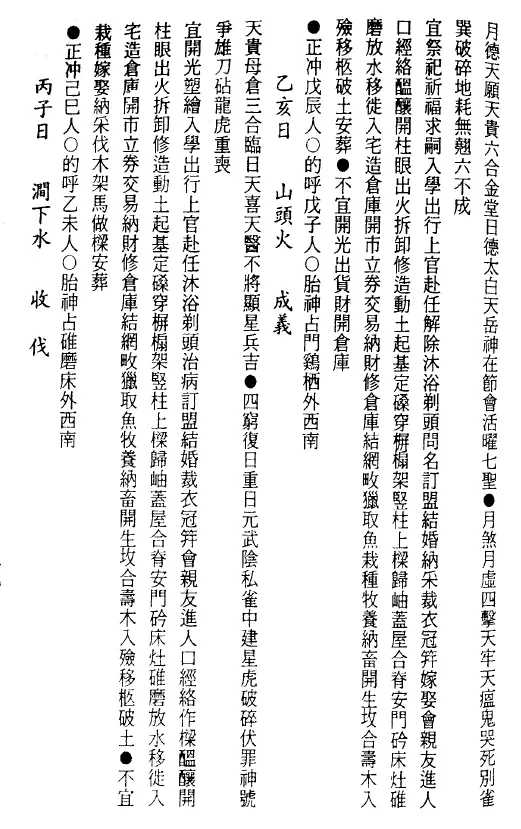 月德天願天貴六合金堂日德太白天岳神在節會活曜七聖●月煞月虛四擊天牢天瘟鬼哭死別雀
巽破碎地耗無翹六不成
宜祭祀祈福求嗣入學出行上官赴任解除沐浴剃頭問名訂盟結婚納采裁衣冠笄嫁娶會親友進人
口經絡醞釀開柱眼出火拆卸修造動土起基定磉穿槪榻架竪柱上樑歸岫蓋屋合脊安門砛床灶碓
磨放水移徙入宅造倉庫開市立券交易納財修倉庫結網畋獵取魚栽種牧養納畜開生坟合壽木入
殮移柩破土安葬●不宜開光出貨財開倉庫
●正冲戊辰人○的呼戊子人○胎神占門鷄栖外西南
乙亥日 山頭火 成義
天貴母倉三合臨日天喜天醫不將顯星兵吉●四窮復日重日元武陰私雀中建星虎破碎伏罪神號
爭雄刀砧龍虎重喪
宜開光塑繪入學出行上官赴任沐浴剃頭治病訂盟結婚裁衣冠笄會親友進人口經絡作樑醞釀開
柱眼出火拆卸修造動土起基定磉穿榻架竪柱上樑歸岫蓋屋合脊安門砛床灶碓磨放水移徙入
宅造倉庫開市立券交易納財修倉庫結網畋獵取魚牧養納畜開生坟合壽木入殮移柩破土●不宜
栽種嫁娶納采伐木架馬做樑安葬
●正冲己巳人○的呼乙未人○胎神占碓磨床外西南
丙子日 澗下水 收伐